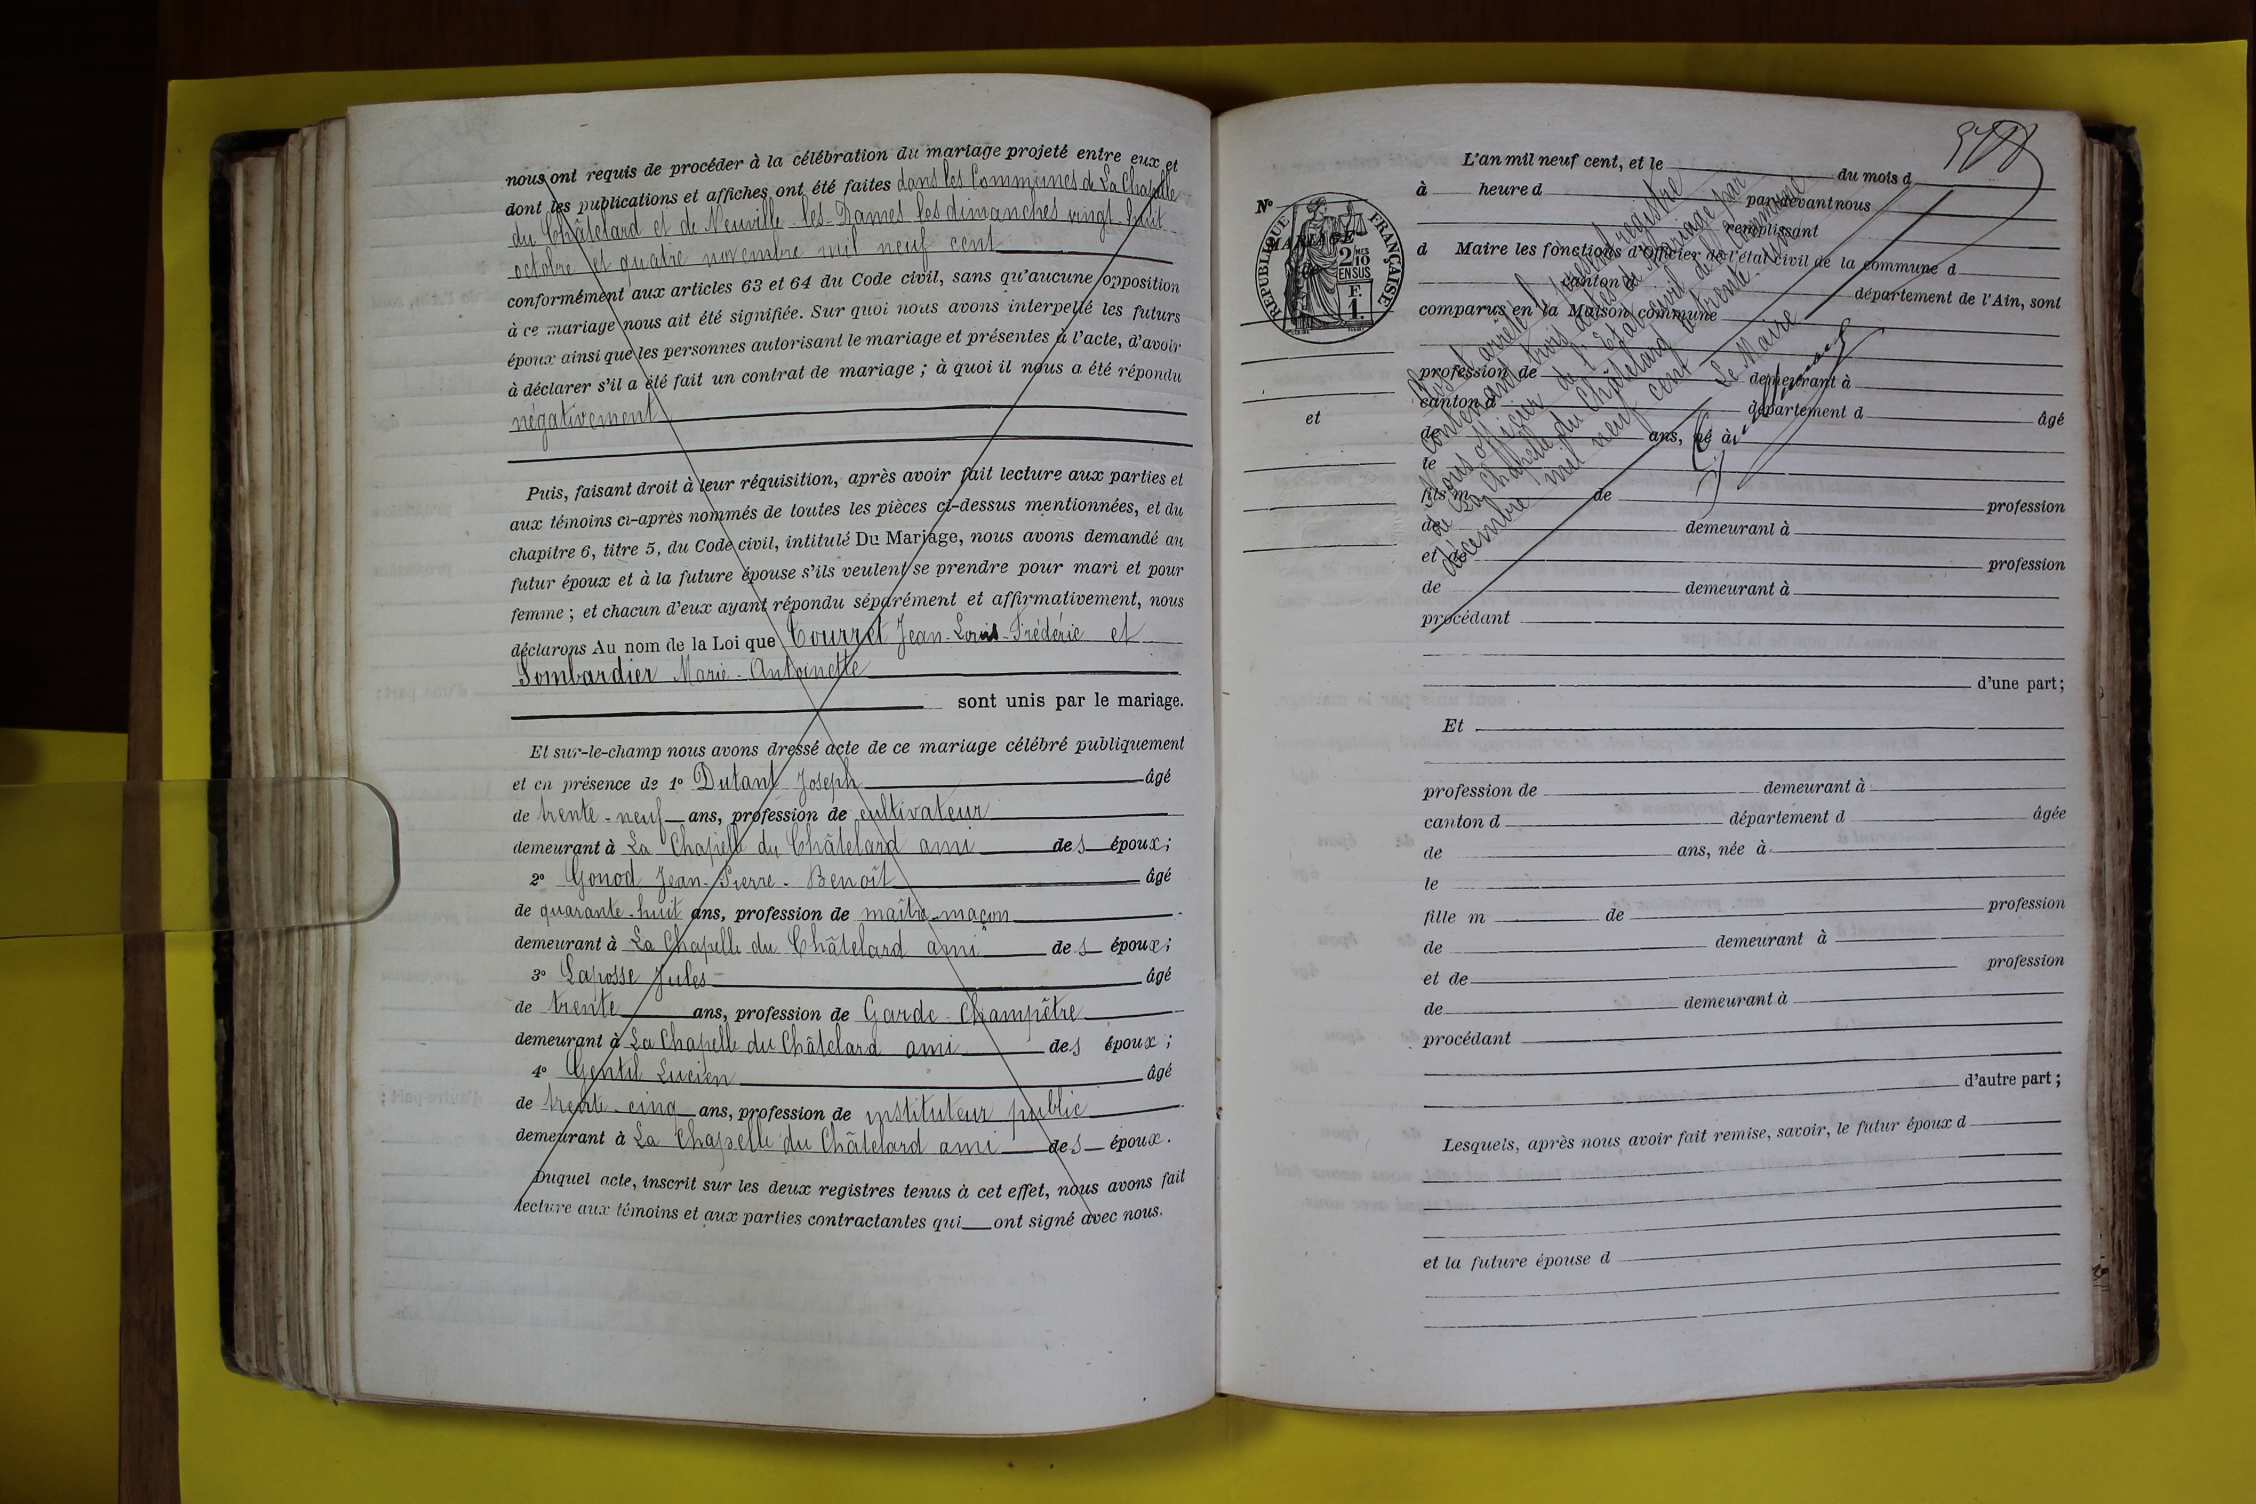 nous ont requis de procéder à la célébration du mariage projeté entre eux et
dont les publications et affiches ont été faites dans les Communes de La Chapelle
du Châtelard et de Neuville-les-Dames les dimanches vingt-huit
octobre et quatre novembre mil neuf cent
conformément aux articles 63 et 64 du Code civil, sans qu'aucune opposition
à ce mariage nous ait été signifiée. Sur quoi nous avons interpellé les futurs
époux ainsi que les personnes autorisant le mariage et présentes à l'acte, d'avoir
à déclarer s'il a été fait un contrat de mariage ; à quoi il nous a été répondu
négativement
Puis, faisant droit à leur réquisition, après avoir fait lecture aux parties et
aux témoins ci-après nommés de toutes les pièces ci-dessus mentionnées, et du
chapitre 6, titre 5, du Code civil, intitulé Du Mariage, nous avons demandé au
futur époux et à la future épouse s'ils veulent se prendre pour mari et pour
femme ; et chacun d'eux ayant répondu séparément et affirmativement, nous
déclarons Au nom de la Loi que Tourret Jean-Louis-Frédéric et
Lombardier Marie-Antoinette
sont unis par le mariage.
Et sur-le-champ nous avons dressé acte de ce mariage célébré publiquement
et en présence de 1° Dutant Joseph âgé
de trente-neuf ans, profession de cultivateur
demeurant à La Chapelle du Châtelard ami des époux ;
2° Gonod Jean-Pierre-Benoît âgé
de quarante-huit ans, profession de maître-maçon
demeurant à La Chapelle du Châtelard ami des époux ;
3° Laposse Jules âgé
de trente ans, profession de Garde-Champêtre
demeurant à La Chapelle du Châtelard ami des époux ;
4° Gentil Lucien âgé
de trente-cinq ans, profession de instituteur public
demeurant à La Chapelle du Châtelard ami des époux.
Duquel acte, inscrit sur les deux registres tenus à cet effet, nous avons fait
lecture aux témoins et aux parties contractantes qui ont signé avec nous.
N°
MARIAGE
de
et
RÉPUBLIQUE FRANÇAISE
2 MES
10
EN SUS
F.
1.
L'an mil neuf cent, et le du mois d
à heure d par-devant nous
remplissant
d Maire les fonctions d'Officier de l'état civil de la commune d
canton d département de l'Ain, sont
comparus en la Maison commune
profession de demeurant à
canton d département d âgé
de ans, né à
le
fils m de profession
de demeurant à
et de profession
de demeurant à
procédant
d'une part ;
Et
profession de demeurant à
canton d département d âgée
de ans, née à
le
fille m de profession
de demeurant à
et de profession
de demeurant à
procédant
d'autre part ;
Lesquels, après nous avoir fait remise, savoir, le futur époux d
et la future épouse d
Clos et arrêté le présent registre
contenant trois actes de Mariage par
Nous officier de l'Etat civil de la commune
de La Chapelle du Châtelard le trente-un
décembre mil neuf cent
Le Maire